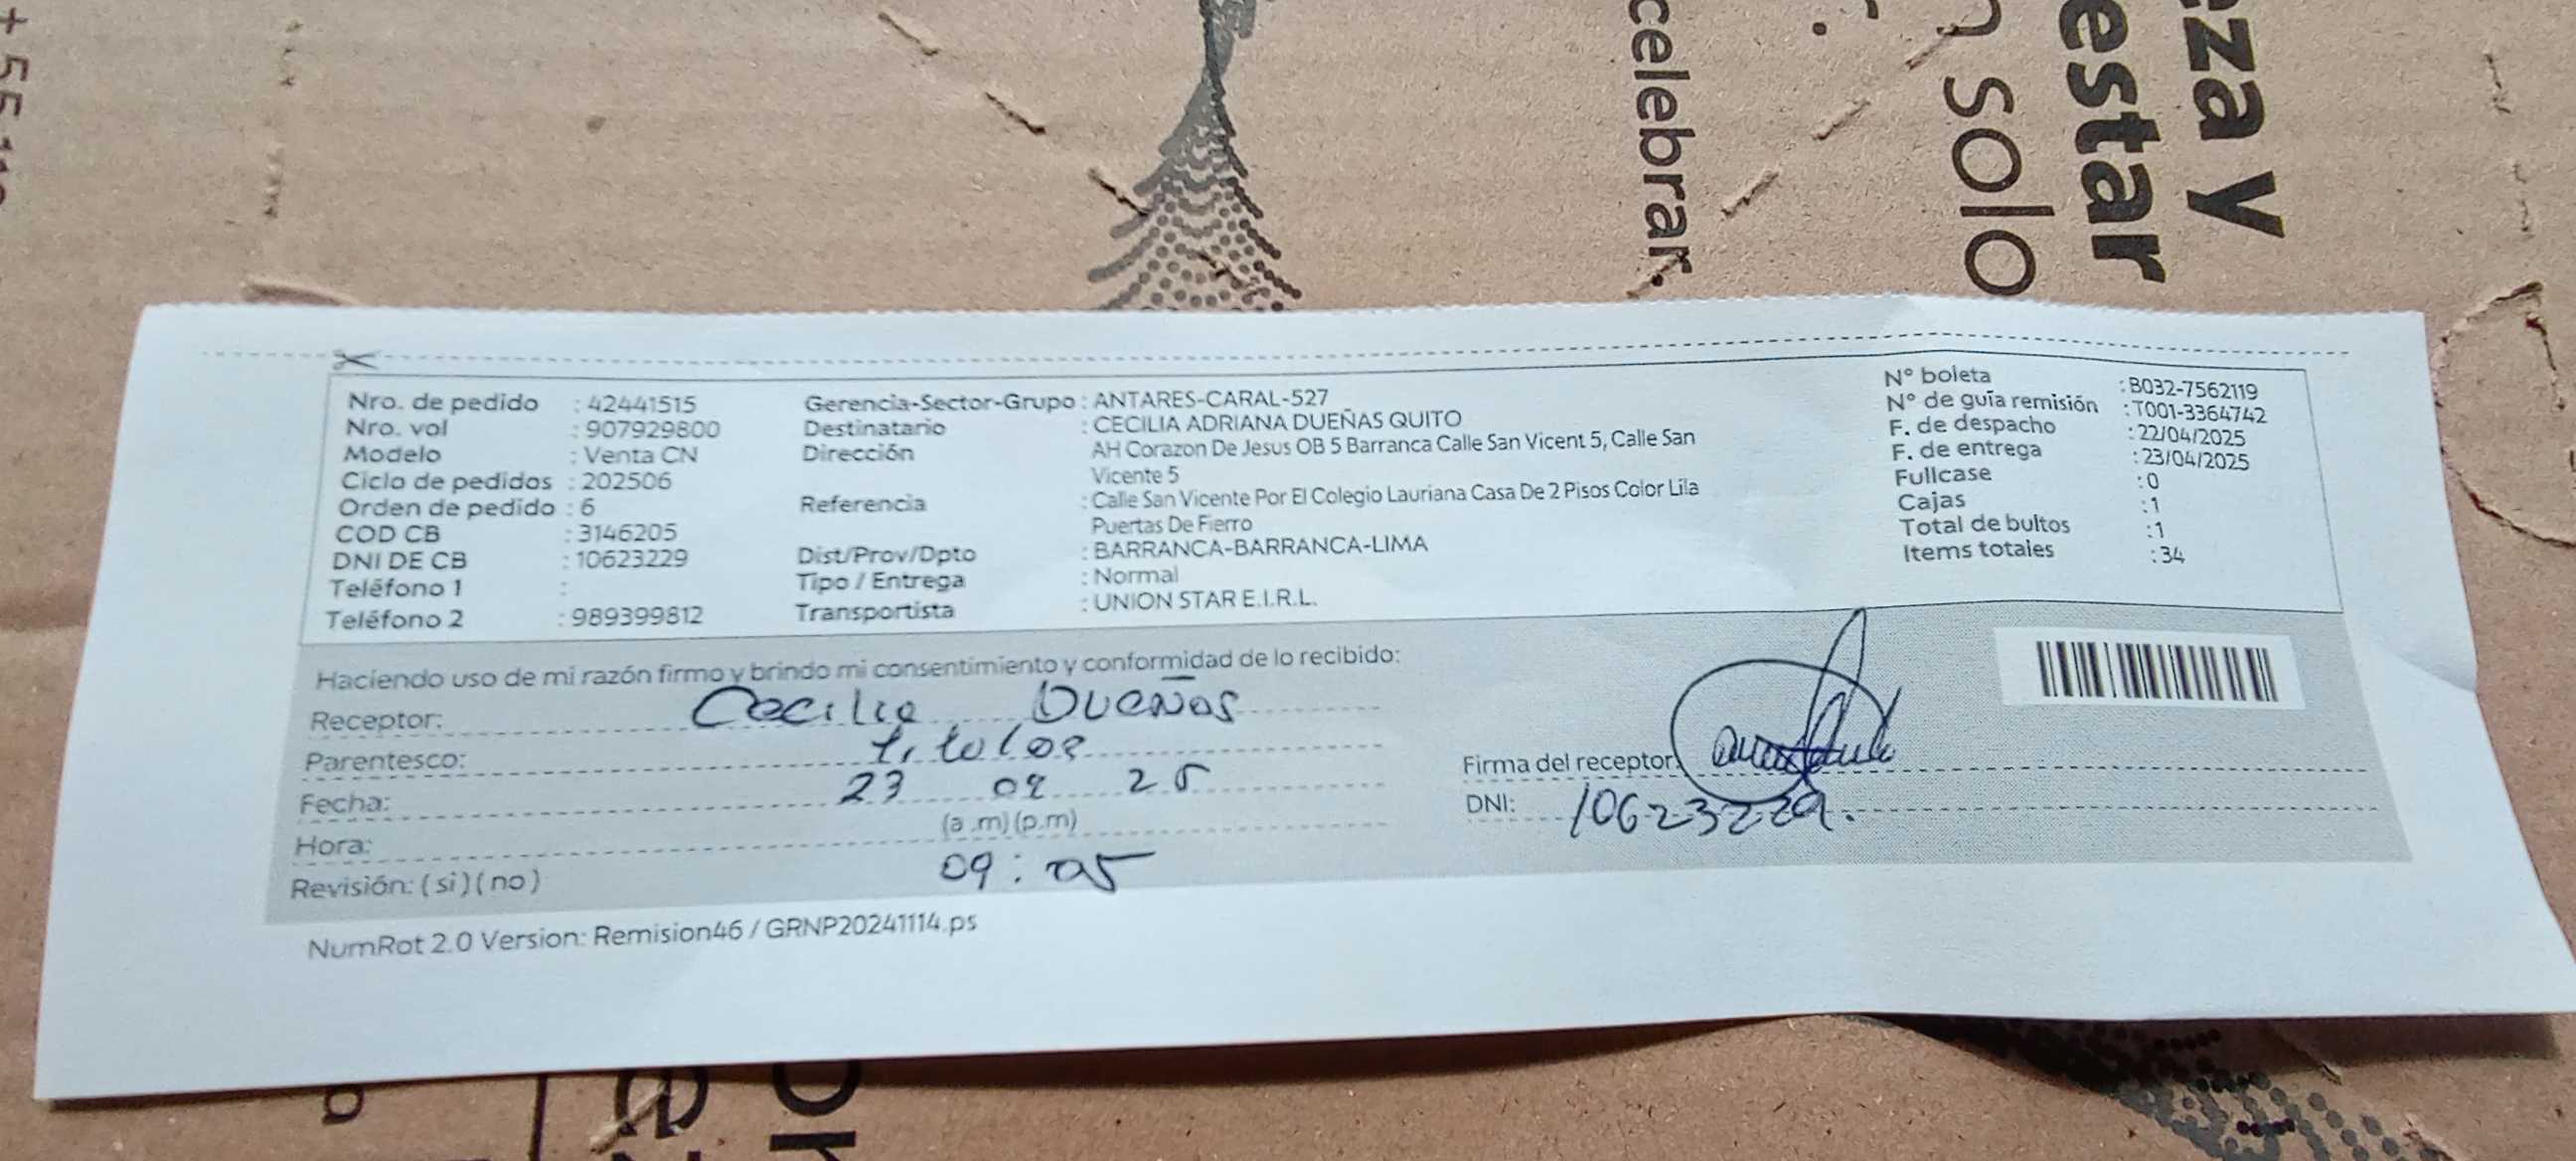 celebrar.
n solo
estar
eza y
Nro. de pedido : 42441515
Nro. vol : 907929800
Modelo : Venta CN
Ciclo de pedidos : 202506
Orden de pedido : 6
COD CB : 3146205
DNI DE CB : 10623229
Teléfono 1 :
Teléfono 2 : 989399812
Gerencia-Sector-Grupo : ANTARES-CARAL-527
Destinatario : CECILIA ADRIANA DUEÑAS QUITO
Dirección AH Corazon De Jesus OB 5 Barranca Calle San Vicent 5, Calle San
Vicente 5
Referencia : Calle San Vicente Por El Colegio Lauriana Casa De 2 Pisos Color Lila
Puertas De Fierro
Dist/Prov/Dpto : BARRANCA-BARRANCA-LIMA
Tipo / Entrega : Normal
Transportista : UNION STAR E.I.R.L.
N° boleta : B032-7562119
N° de guía remisión : T001-3364742
F. de despacho : 22/04/2025
F. de entrega : 23/04/2025
Fullcase : 0
Cajas : 1
Total de bultos : 1
Items totales : 34
Haciendo uso de mi razón firmo y brindo mi consentimiento y conformidad de lo recibido:
Receptor: Cecilia Dueñas
Parentesco: titular
Fecha: 23 04 25
Hora: (a .m) (p.m)
09:05
Revisión: ( si ) ( no )
Firma del receptor:
DNI: 10623229.
NumRot 2.0 Version: Remision46 / GRNP20241114.ps